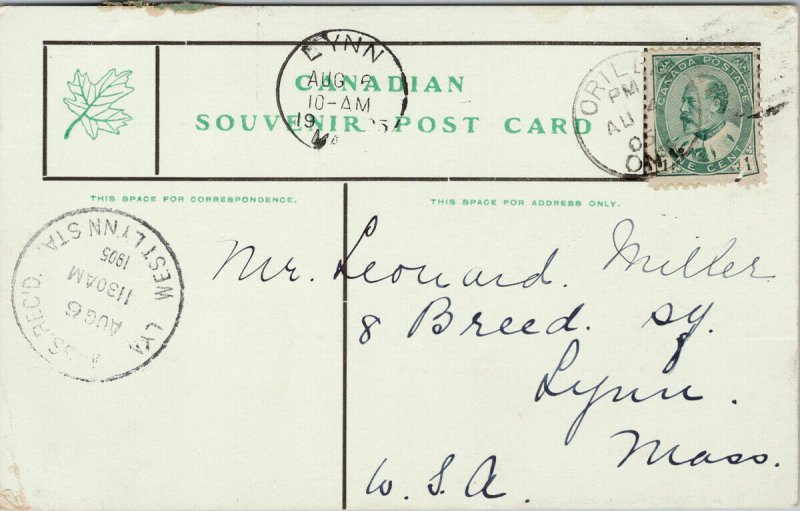 CANADIAN
SOUVENIR POST CARD
LYNN
AUG 6
10-AM
1905
ORILL
PM
AU
05
ONT
CANADA POSTAGE
ONE CENT
1
THIS SPACE FOR CORRESPONDENCE.
THIS SPACE FOR ADDRESS ONLY.
WEST LYNN STA.
1905
1130AM
AUG 6
REC'D.
Mr. Leonard. Miller
8 Breed. sq.
Lynn.
Mass.
W. S. A.